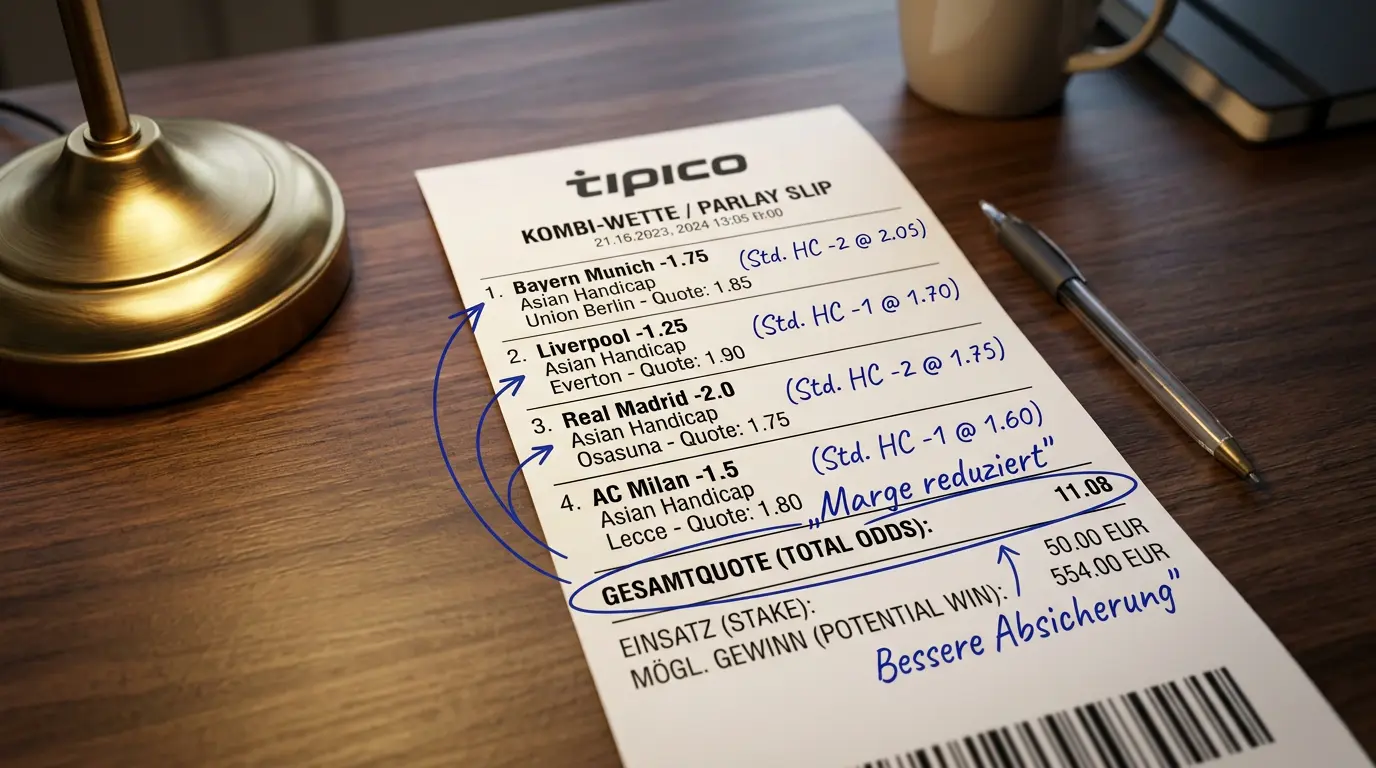 tipico
KOMBI-WETTE / PARLAY SLIP
21.16.2023, 2024 13:05
1. Bayern Munich -1.75 (Std. HC -2 @ 2.05)
Asian Handicap
Union Berlin - Quote: 1.85
2. Liverpool -1.25 (Std. HC -1 @ 1.70)
Asian Handicap
Everton - Quote: 1.90
3. Real Madrid -2.0 (Std. HC -2 @ 1.75)
Asian Handicap
Osasuna - Quote: 1.75
4. AC Milan -1.5 (Std. HC -1 @ 1.60)
Asian Handicap
Lecce - Quote: 1.80
„Marge reduziert”
GESAMTQUOTE (TOTAL ODDS): 11.08
EINSATZ (STAKE): 50.00 EUR
MÖGL. GEWINN (POTENTIAL WIN): 554.00 EUR
Bessere Absicherung”